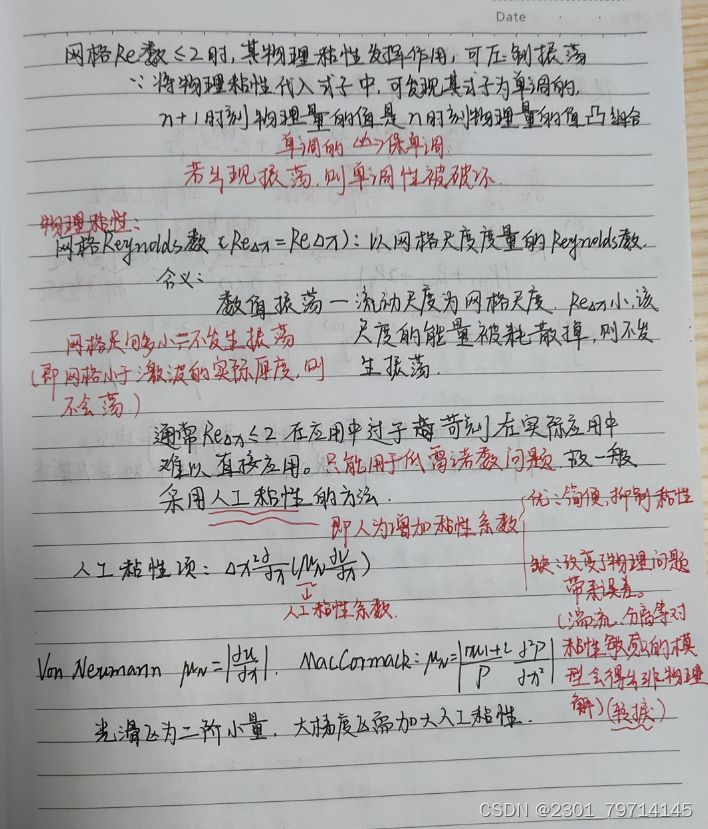 Date
网格Re数≤2时,其物理粘性发挥作用,可压制振荡
∵将物理粘性代入式子中,可发现其式子为单调的,
n+1时刻物理量的值是n时刻物理量的值凸组合
单调的 <=> 保单调
若出现振荡,则单调性被破坏.
物理粘性:
网格Reynolds数(ReΔx=ReΔx):以网格尺度度量的Reynolds数.
含义:
数值振荡—流动尺度为网格尺度. ReΔx小,该
尺度的能量被耗散掉,则不发
生振荡.
网格足够多小=不发生振荡
(即网格小于激波的实际厚度,则
不会荡.)
通常ReΔx≤2在应用中过于苛刻在实际应用中
难以直接应用。只能用于低雷诺数问题 故一般
采用人工粘性的方法.
即人为增加粘性系数
优:简便,抑制粘性
缺:改变了物理问题
带来误差。
(湍流、分离等对
粘性敏感的模
型会得出非物理
解)
人工粘性项:Δx²∂/∂x(μN ∂u/∂x)
人工粘性系数.
Von Neumann μN=|∂u/∂x|. MacCormack: μN=| ∂²P/∂x²|
光滑区为二阶小量,大梯度区而加大人工粘性.
CSDN @2301_79714145